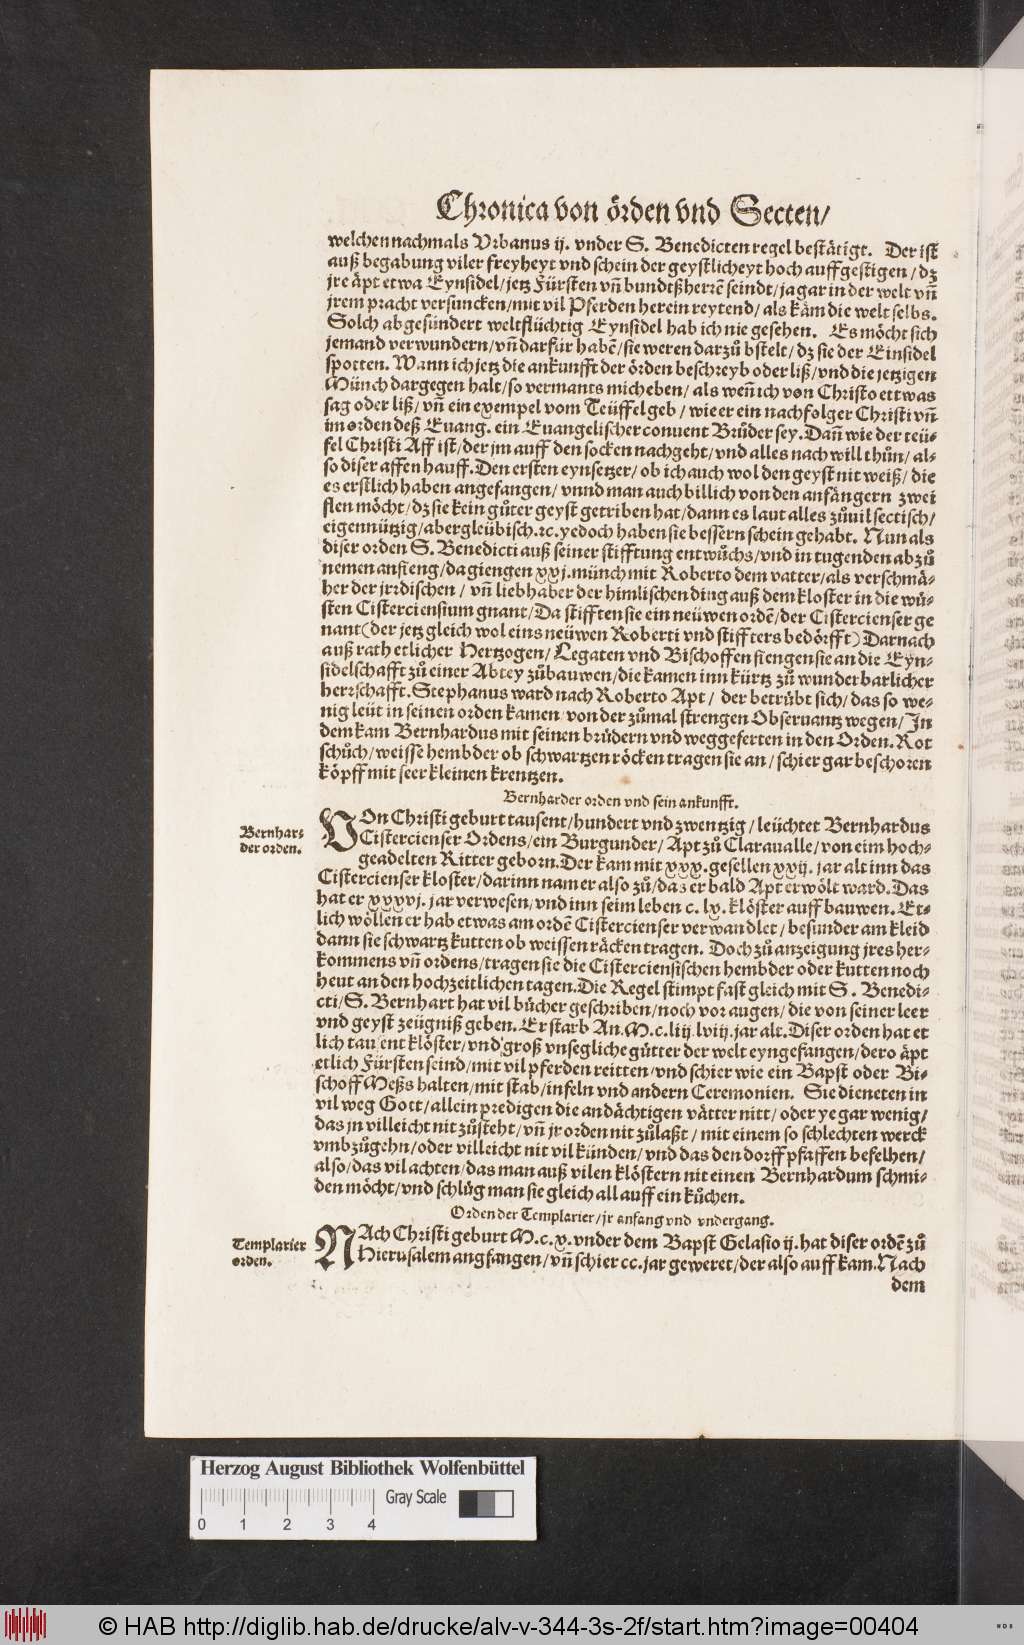 Chronica von örden vnd Secten/
welchen nachmals Vrbanus ij. vnder S. Benedicten regel bestätigt. Der ist
auß begabung viler freyheyt vnd schein der geystlicheyt hoch auffgestigen/dz
jre äpt etwa Eynsidel/jetz Fürsten vñ bundtßherrẽ seindt/ja gar in der welt vñ
jrem pracht versuncken/mit vil Pferden herein reytend/als käm die welt selbs.
Solch abgesündert weltflüchtig Eynsidel hab ich nie gesehen. Es möcht sich
jemand verwundern/vñ darfür habẽ/sie weren darzů bstelt/dz sie der Einsidel
spotten. Wann ich jetz die ankunfft der örden beschreyb oder liß/vnd die jetzigen
Münch dargegen halt/so vermants mich eben/als weñ ich von Christo ettwas
sag oder liß/vñ ein exempel vom Teüffel geb/wie er ein nachfolger Christi vñ
im orden deß Euang. ein Euangelischer conuent Brůder sey. Dañ wie der teü-
fel Christi Aff ist/der jm auff den socken nachgeht/vnd alles nach will thůn/al-
so diser affen hauff. Den ersten eynsetzer/ob ich auch wol den geyst nit weiß/die
es erstlich haben angefangen/vnnd man auch billich von den anfängern zwei
flen möcht/dz sie kein gůter geyst getriben hat/dann es laut alles zůuil sectisch/
eigennützig/abergleübisch.ꝛc. yedoch haben sie bessern schein gehabt. Nun als
diser orden S. Benedicti auß seiner stifftung entwůchs/vnd in tugenden abzů
nemen anfieng/da giengen xxj. münch mit Roberto dem vatter/als verschmä-
her der jrrdischen/vñ liebhaber der himlischen ding auß dem kloster in die wů-
sten Cisterciensium gnant/Da stifften sie ein neüwen ordẽ/der Cistercienser ge
nant (der jetz gleich wol eins neüwen Roberti vnd stiffters bedörfft) Darnach
auß rath etlicher Hertzogen/Legaten vnd Bischoffen fiengen sie an die Eyn-
sidelschafft zů einer Abtey zůbauwen/die kamen inn kürtz zů wunderbarlicher
herrschafft. Stephanus ward nach Roberto Apt/der betrůbt sich/das so we-
nig leüt in seinen orden kamen/von der zůmal strengen Obseruantz wegen/In
dem kam Bernhardus mit seinen brüdern vnd weggeferten in den Orden. Rot
schůch/weisse hembder ob schwartzen röcken tragen sie an/schier gar beschoren
köpff mit seer kleinen krentzen.
Bernharder orden vnd sein ankunfft.
Bernhar-
der orden.
VOn Christi geburt tausent/hundert vnd zwentzig/leüchtet Bernhardus
Cistercienser Ordens/ein Burgunder/Apt zů Claraualle/von eim hoch-
geadelten Ritter geborn. Der kam mit xxx. gesellen xxij. jar alt inn das
Cistercienser kloster/darinn nam er also zů/das er bald Apt erwölt ward. Das
hat er xxxvj. jar verwesen/vnd inn seim leben c. lx. klöster auff bauwen. Et-
lich wöllen er hab etwas am ordẽ Cistercienser verwandlet/besunder am kleid
dann sie schwartz kutten ob weissen räcken tragen. Doch zů anzeigung jres her-
kommens vñ ordens/tragen sie die Cisterciensischen hembder oder kutten noch
heut an den hochzeitlichen tagen. Die Regel stimpt fast gleich mit S. Benedi-
cti/S. Bernhart hat vil bůcher geschriben/noch vor augen/die von seiner leer
vnd geyst zeügniß geben. Er starb An. M. c. liij. lviij. jar alt. Diser orden hat et
lich tausent klöster/vnd groß vnsegliche gůtter der welt eyngefangen/dero äpt
etlich Fürsten seind/mit vil pferden reitten/vnd schier wie ein Bapst oder Bi-
schoff Meßs halten/mit stab/infeln vnd andern Ceremonien. Sie dieneten in
vil weg Gott/allein predigen die andächtigen vätter nitt/oder ye gar wenig/
das jn villeicht nit zůsteht/vñ jr orden nit zůlaßt/mit einem so schlechten werck
vmbzůgehn/oder villeicht nit vil künden/vnd das den dorffpfaffen befelhen/
also/das vil achten/das man auß vilen klöstern nit einen Bernhardum schmi-
den möcht/vnd schlüg man sie gleich all auff ein kůchen.
Orden der Templarier/jr anfang vnd vndergang.
Templarier
orden.
NAch Christi geburt M. c. x. vnder dem Bapst Gelasio ij. hat diser ordẽ zů
Hierusalem angfangen/vñ schier cc. jar geweret/der also auff kam. Nach
dem
Herzog August Bibliothek Wolfenbüttel
Gray Scale
0 1 2 3 4
© HAB http://diglib.hab.de/drucke/alv-v-344-3s-2f/start.htm?image=00404